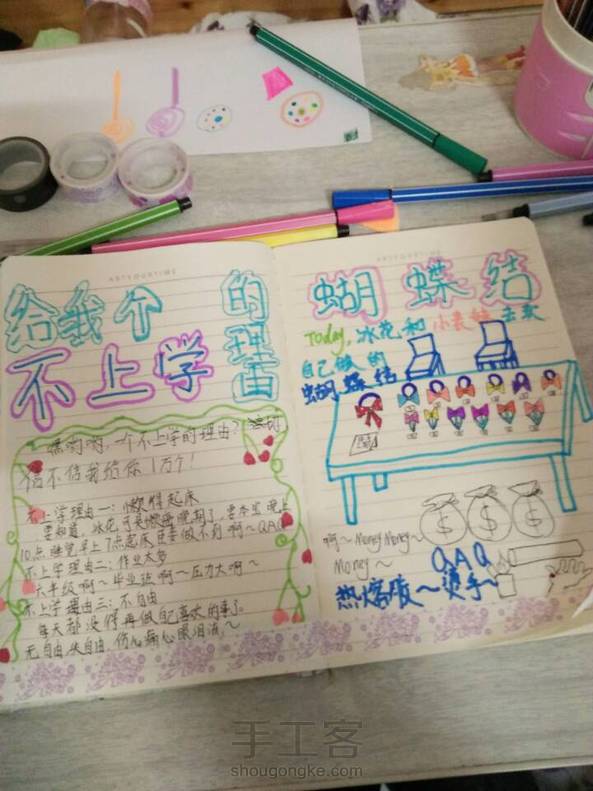 给我个 的
不上学 理由
嘿哟哟，一个不上学的理由？
信不信我给你1万个！
不上学理由一：懒得起床
要知道，冰花可是
10点睡觉早上7点起床 做不到啊~QAQ
不上学理由二：作业太多
六年级啊~毕业班啊~压力大啊~
不上学理由三：不自由
每天都没得再做自己喜欢的事了
无自由，失自由，伤心痛心眼泪流~
蝴蝶结
Today，冰花和小表妹去卖
自己做的
蝴蝶结
啊~Money Money~
Money~
QAQ
热熔胶~烫手~
手工客
shougongke.com